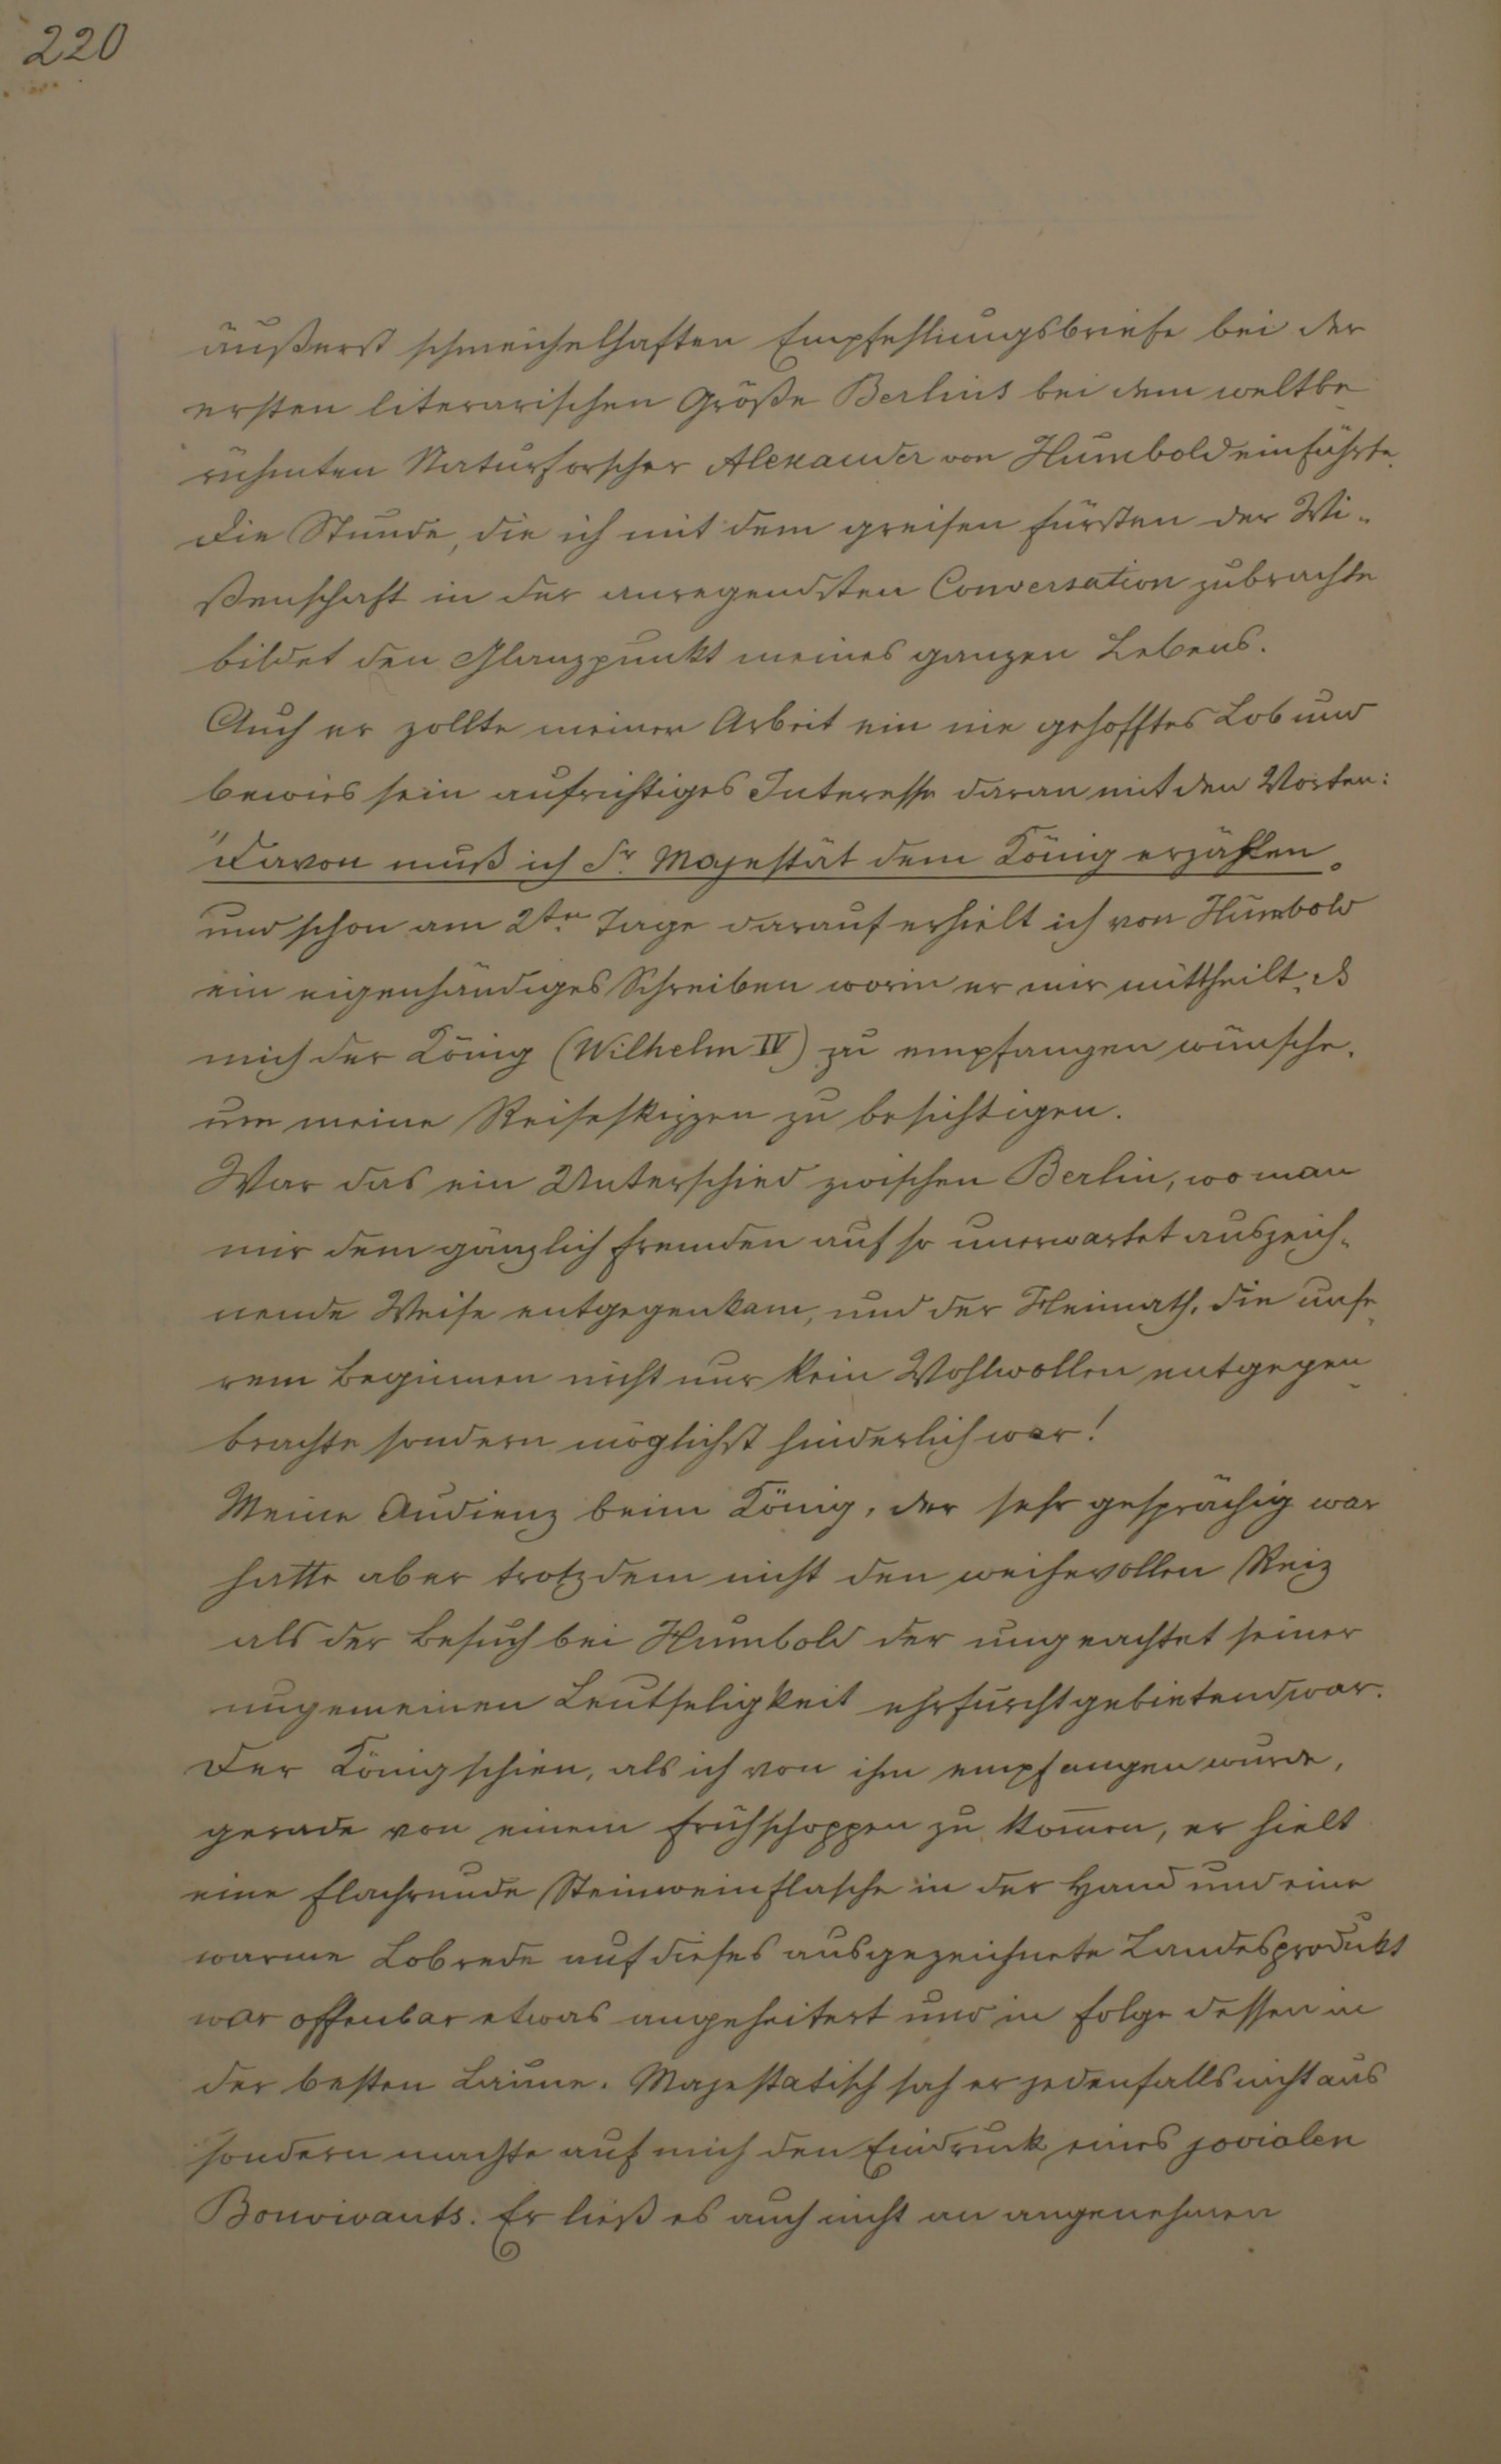 220
äußerst schmeichelhaften Empfehlungsbriefe bei der
ersten literarischen Größe Berlins bei dem weltbe
rühmten Naturforscher Alexander von Humbold einführte.
Die Stunde, die ich mit dem greisen Fürsten der Wi-
ßenschaft in der anregendsten Conversation zubrachte
bildet den Glanzpunkt meines ganzen Lebens.
Auch er zollte meiner Arbeit ein nie gehofftes Lob und
bewies sein aufrichtiges Interesse daran mit den Worten:
"Davon muß ich Sr. Majestät dem König erzählen.
und schon am 2ten Tage darauf erhielt ich von Humbold
ein eigenhändiges Schreiben worin er mir mittheilt,
mich der König (Wilhelm IV) zu empfangen wünsche,
um meine Reiseskizzen zu besichtigen.
War das ein Unterschied zwischen Berlin, wo man
mir dem gänzlich Fremden auf so unerwartet auszeich-
nende Weise entgegenkam, und der Heimath, die unse
rem Beginnen nicht nur kein Wohlwollen entgegen
brachte sondern möglichst hinderlich war!
Meine Audienz beim König, der sehr gesprächig war
hatte aber trotzdem nicht den weihevollen Reiz
als der Besuch bei Humbold der ungeachtet seiner
ungemeinen Leutseligkeit ehrfurchtgebietend war.
Der König schien, als ich von ihm empfangen wurde,
gerade von einem Frühschoppen zu kom̅en, er hielt
eine flachrunde Steinweinflasche in der Hand und eine
warme Lobrede auf dieses ausgezeichnete Landesprodukt
war offenbar etwas angeheitert und in Folge dessen in
der besten Laune. Majestatisch sah er jedenfalls nicht aus
sondern machte auf mich den Eindruck eines jovialen
Bonvivants. Er ließ es auch nicht an angenehmen